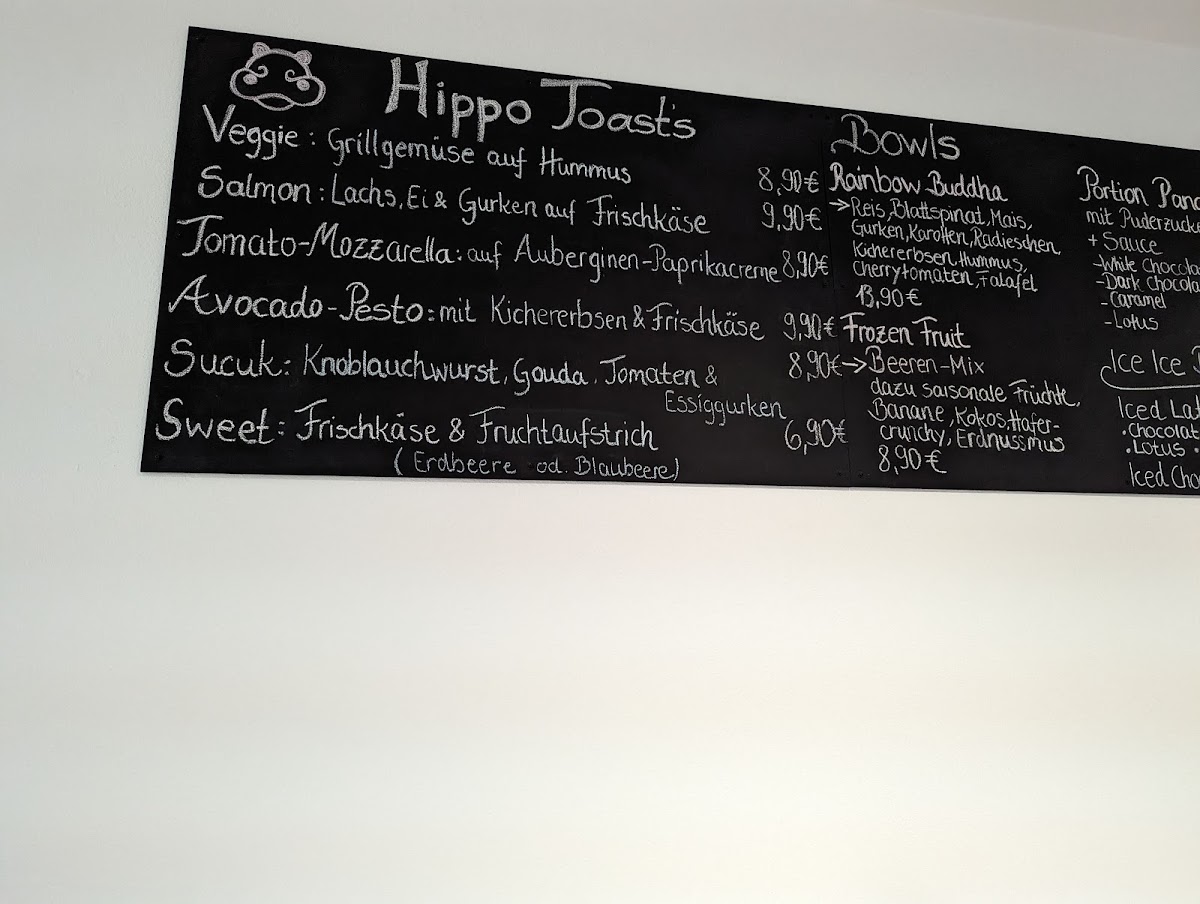 Hippo Toast's
Veggie: Grillgemüse auf Hummus 8,90€
Salmon: Lachs, Ei & Gurken auf Frischkäse 9,90€
Tomato-Mozzarella: auf Auberginen-Paprikacreme 8,90€
Avocado-Pesto: mit Kichererbsen & Frischkäse 9,90€
Sucuk: Knoblauchwurst, Gouda, Tomaten & 8,90€
Essiggurken
Sweet: Frischkäse & Fruchtaufstrich 6,90€
(Erdbeere od. Blaubeere)
Bowls
Rainbow Buddha
→Reis, Blattspinat, Mais,
Gurken, Karotten, Radieschen,
Kichererbsen, Hummus,
Cherrytomaten, Falafel
13,90€
Frozen Fruit
→Beeren-Mix
dazu saisonale Früchte,
Banane, Kokos, Hafer-
crunchy, Erdnussmus
8,90€
Portion
mit
+ Sauce
-White
-Dark
-Caramel
-Lotus
Ice Ice
Iced
•Lotus •
Iced